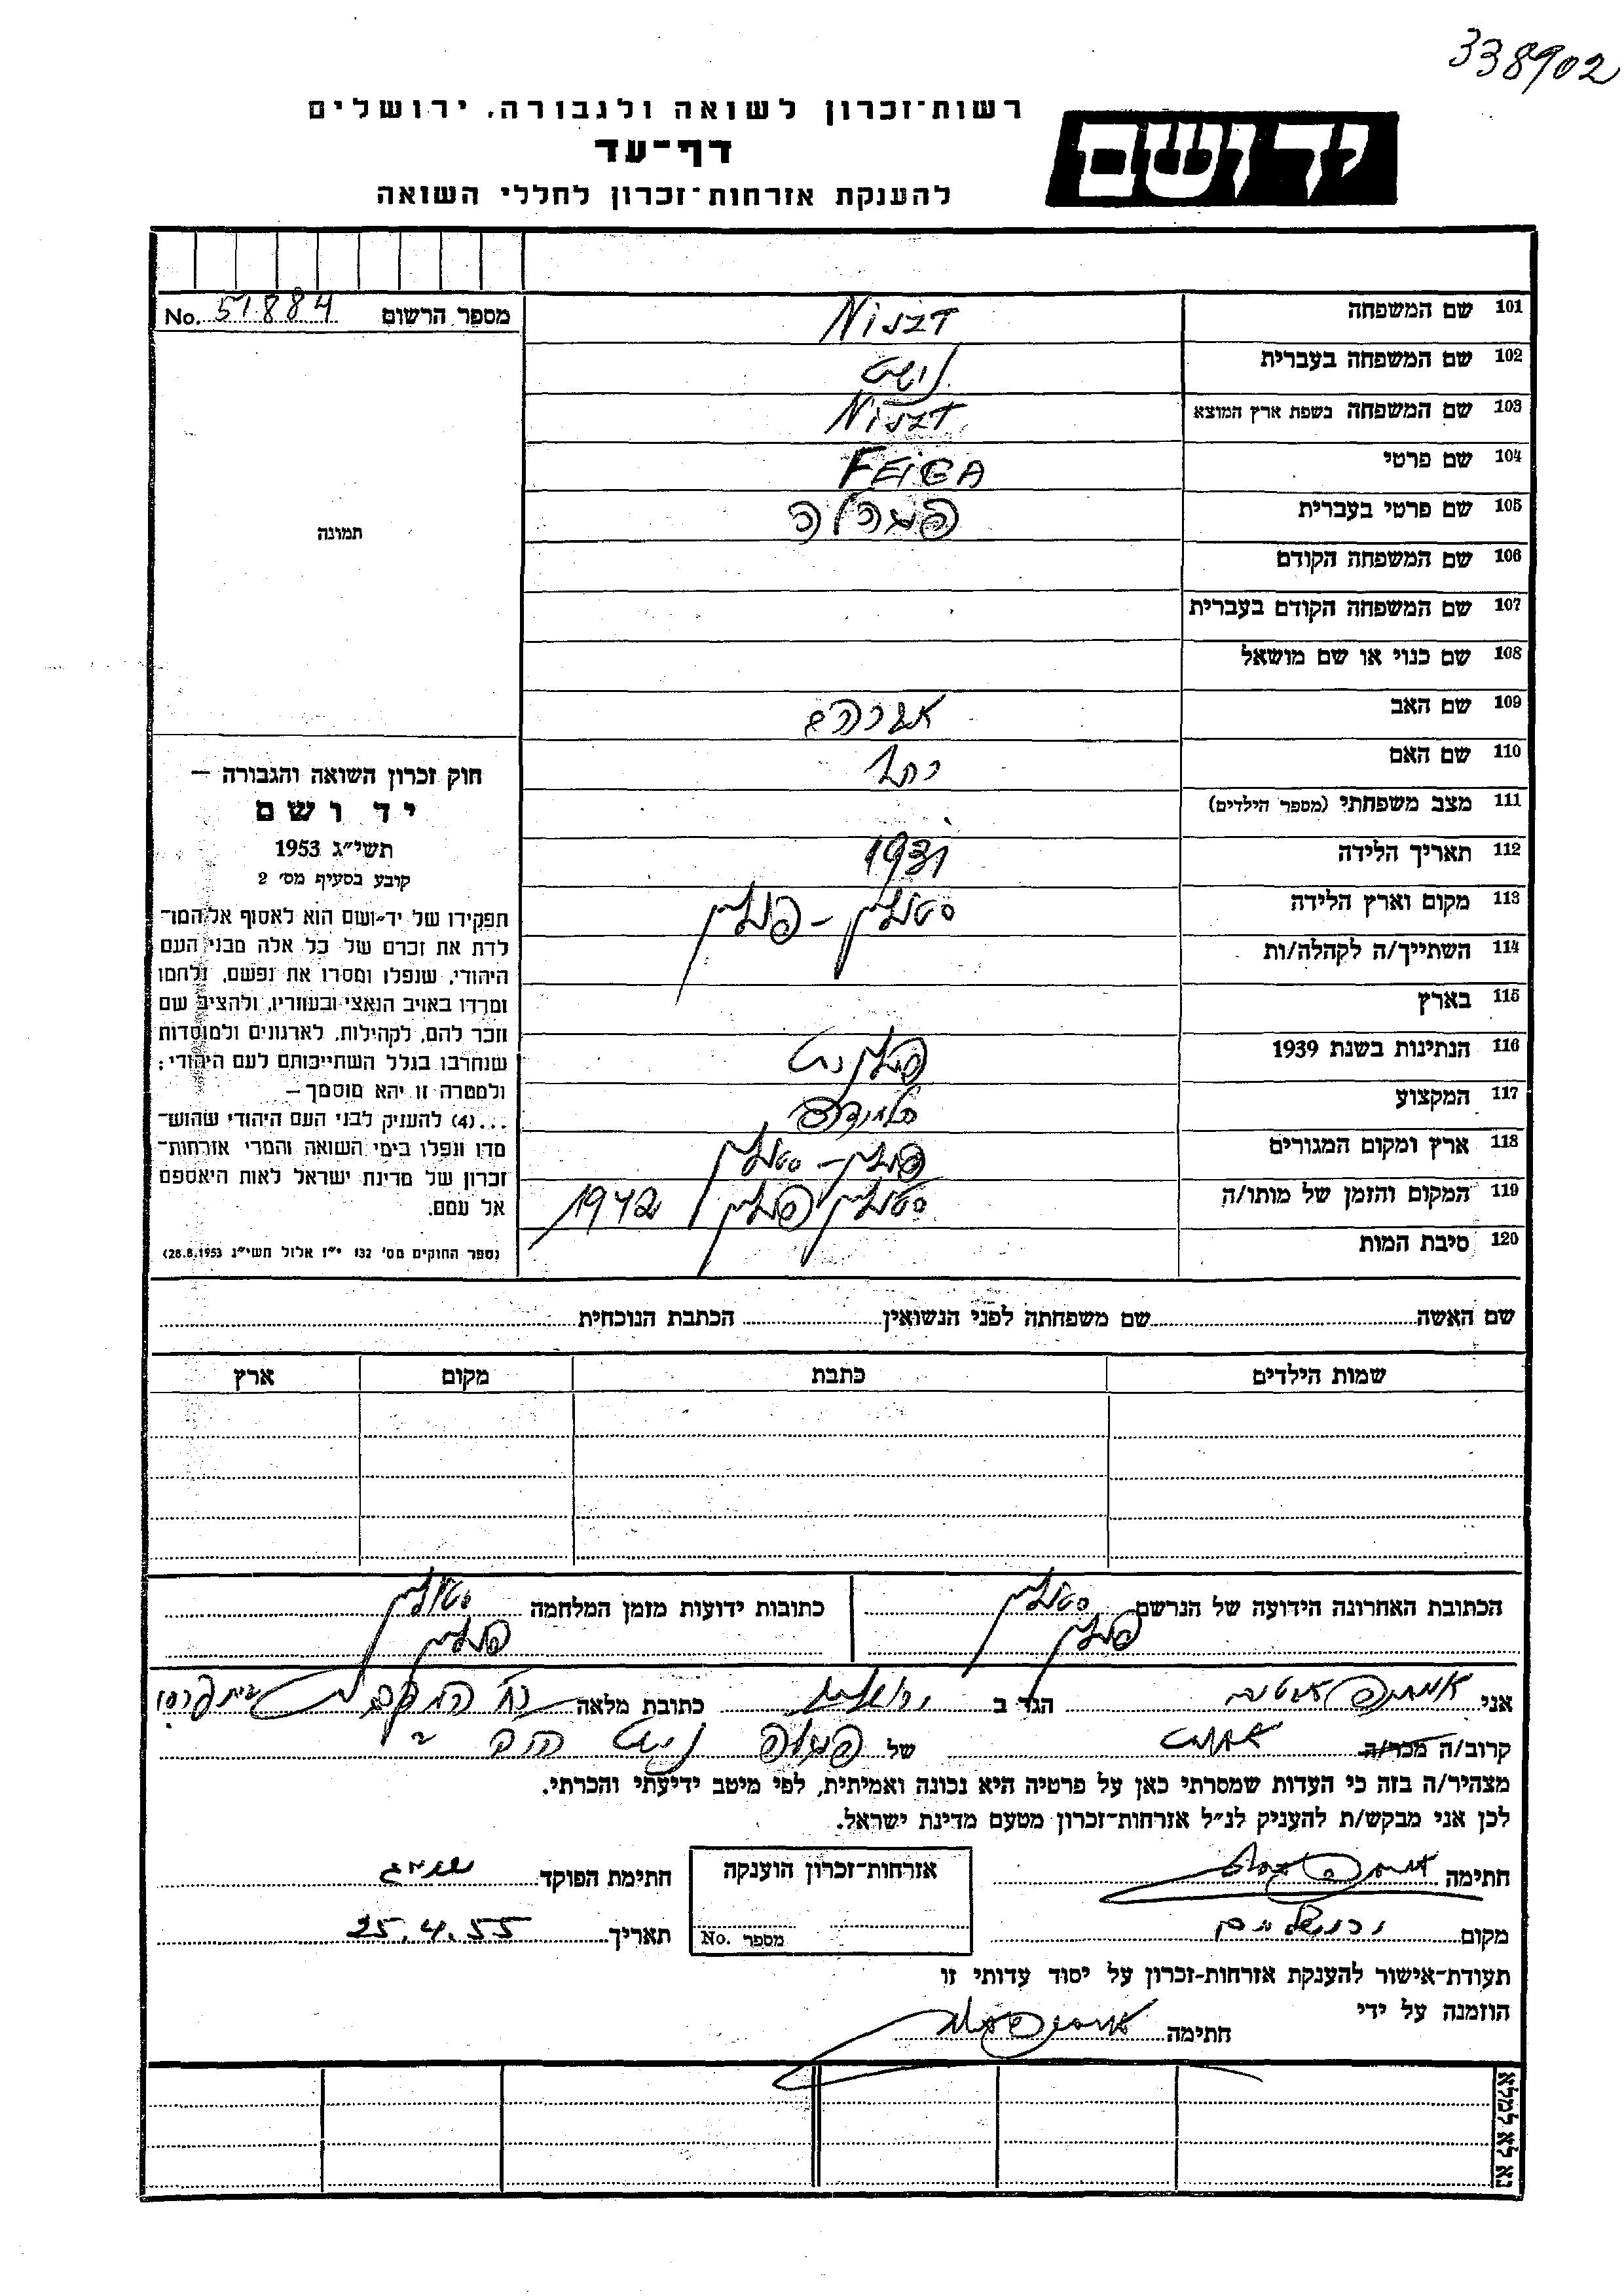 338902
רשות־זכרון לשואה ולגבורה, ירושלים
יד ושם
דף־עד
להענקת אזרחות־זכרון לחללי השואה
מספר הרשום No. 51884
תמונה
101 שם המשפחה Niszt
102 שם המשפחה בעברית נישט
103 שם המשפחה בשפת ארץ המוצא Niszt
104 שם פרטי FEIGA
105 שם פרטי בעברית
106 שם המשפחה הקודם
107 שם המשפחה הקודם בעברית
108 שם כנוי או שם מושאל
109 שם האב אברהם
110 שם האם רחל
111 מצב משפחתי (מספר הילדים)
112 תאריך הלידה 1931
113 מקום וארץ הלידה סטולין – פולין
114 השתייך/ה לקהלה/ות
115 בארץ
116 הנתינות בשנת 1939 פולנית
117 המקצוע תלמידה
118 ארץ ומקום המגורים פולין – סטולין
119 המקום והזמן של מותו/ה סטולין פולין 1942
120 סיבת המות
חוק זכרון השואה והגבורה –
יד ושם
תשי״ג 1953
קובע בסעיף מס׳ 2
תפקידו של יד־ושם הוא לאסוף אל המו־
לדת את זכרם של כל אלה מבני העם
היהודי, שנפלו ומסרו את נפשם, נלחמו
ומרדו באויב הנאצי ובעוזריו, ולהציב שם
וזכר להם, לקהילות, לארגונים ולמוסדות
שנחרבו בגלל השתייכותם לעם היהודי;
ולמטרה זו יהא מוסמך –
...(4) להעניק לבני העם היהודי שהוש־
מדו ונפלו בימי השואה והמרי אזרחות־
זכרון של מדינת ישראל לאות היאספם
אל עמם.
(ספר החוקים מס׳ 132 י״ז אלול תשי״ג 28.8.1953)
שם האשה שם משפחתה לפני הנשואין הכתבת הנוכחית
שמות הילדים כתבת מקום ארץ
הכתובת האחרונה הידועה של הנרשם סטולין
פולין
כתובות ידועות מזמן המלחמה סטולין
פולין
אני הגר ב ירושלים כתובת מלאה
קרוב/ה מכר/ה של נישט
מצהיר/ה בזה כי העדות שמסרתי כאן על פרטיה היא נכונה ואמיתית, לפי מיטב ידיעתי והכרתי.
לכן אני מבקש/ת להעניק לנ״ל אזרחות־זכרון מטעם מדינת ישראל.
חתימה
אזרחות־זכרון הוענקה
מספר No.
חתימת הפוקד
מקום ירושלים
תאריך 25.4.55
תעודת־אישור להענקת אזרחות־זכרון על יסוד עדותי זו
הוזמנה על ידי
חתימה
נא לא למלא